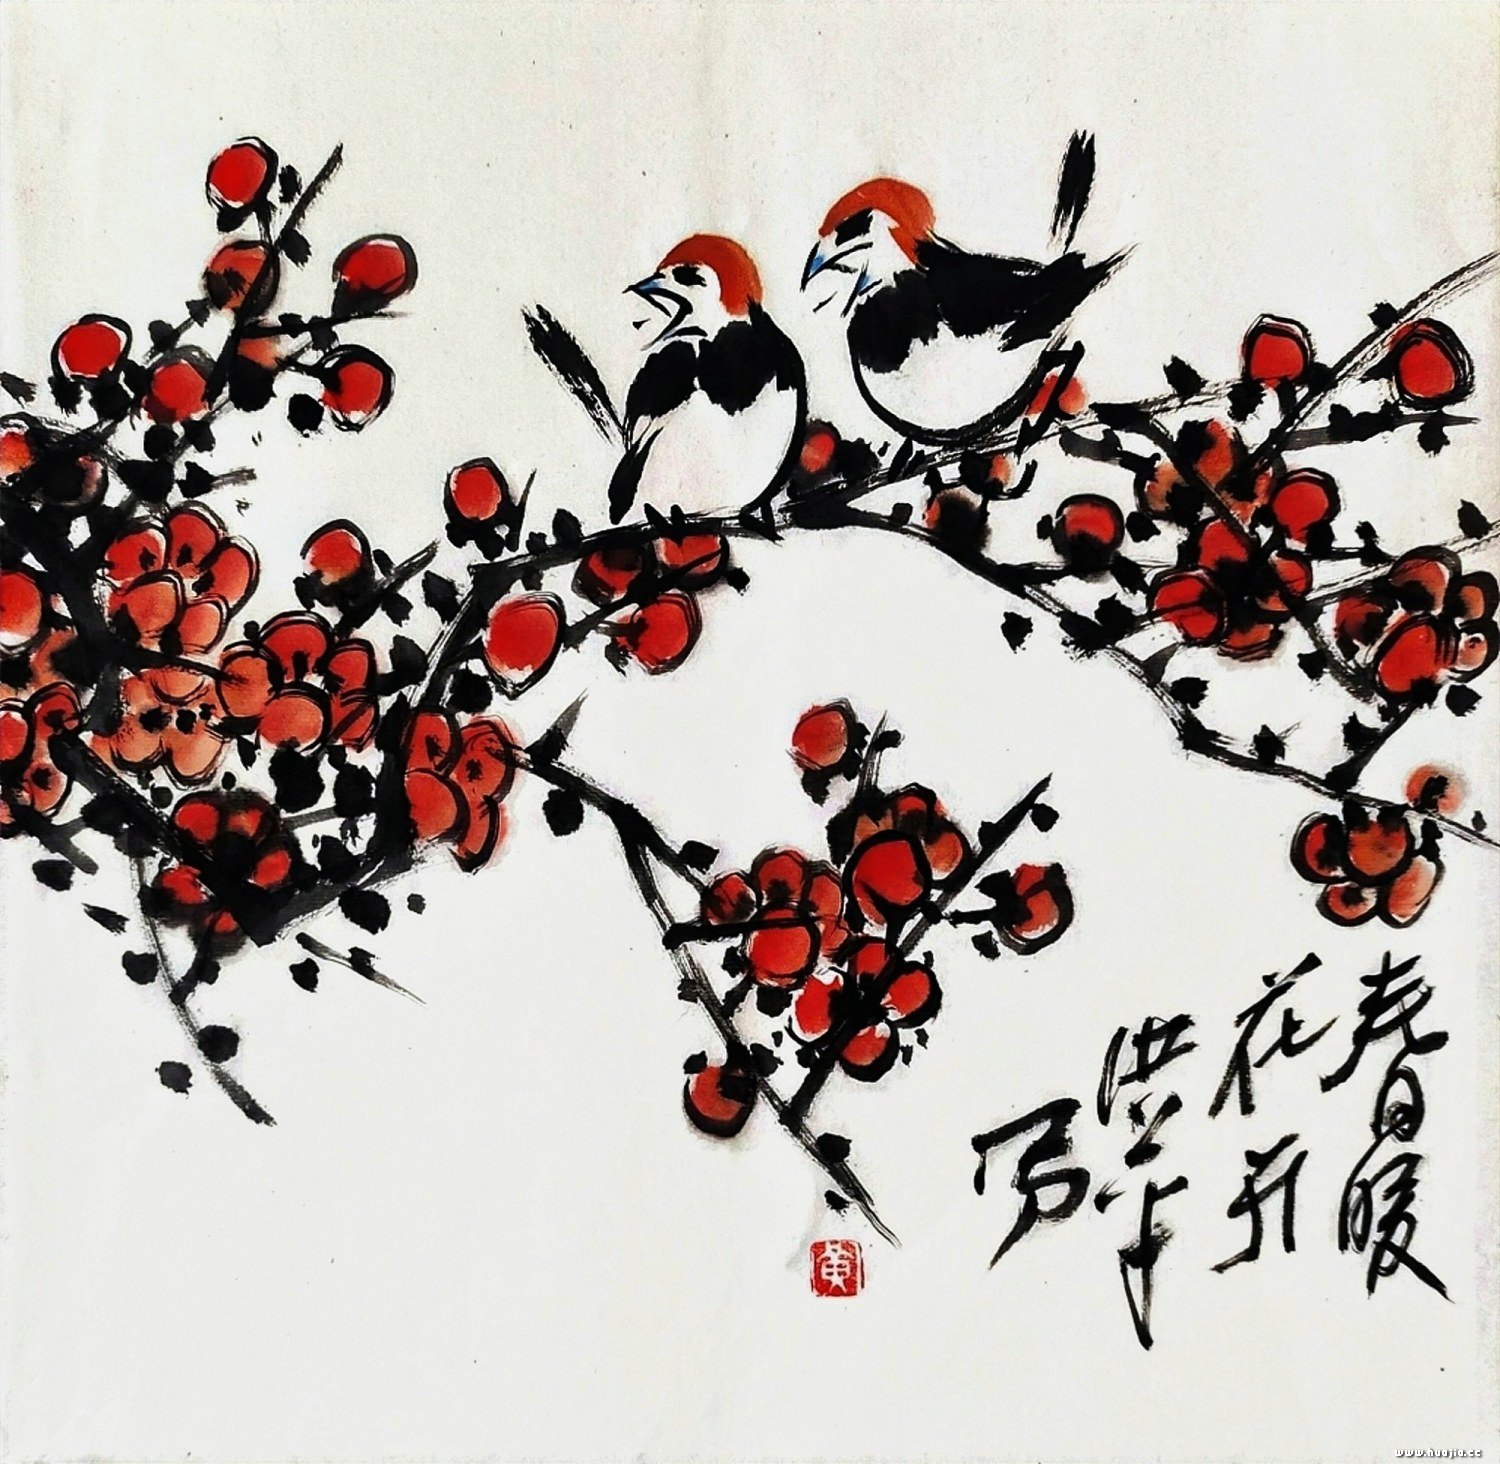 春暖
花开
洪筆
写
黄
www.huajia.cc